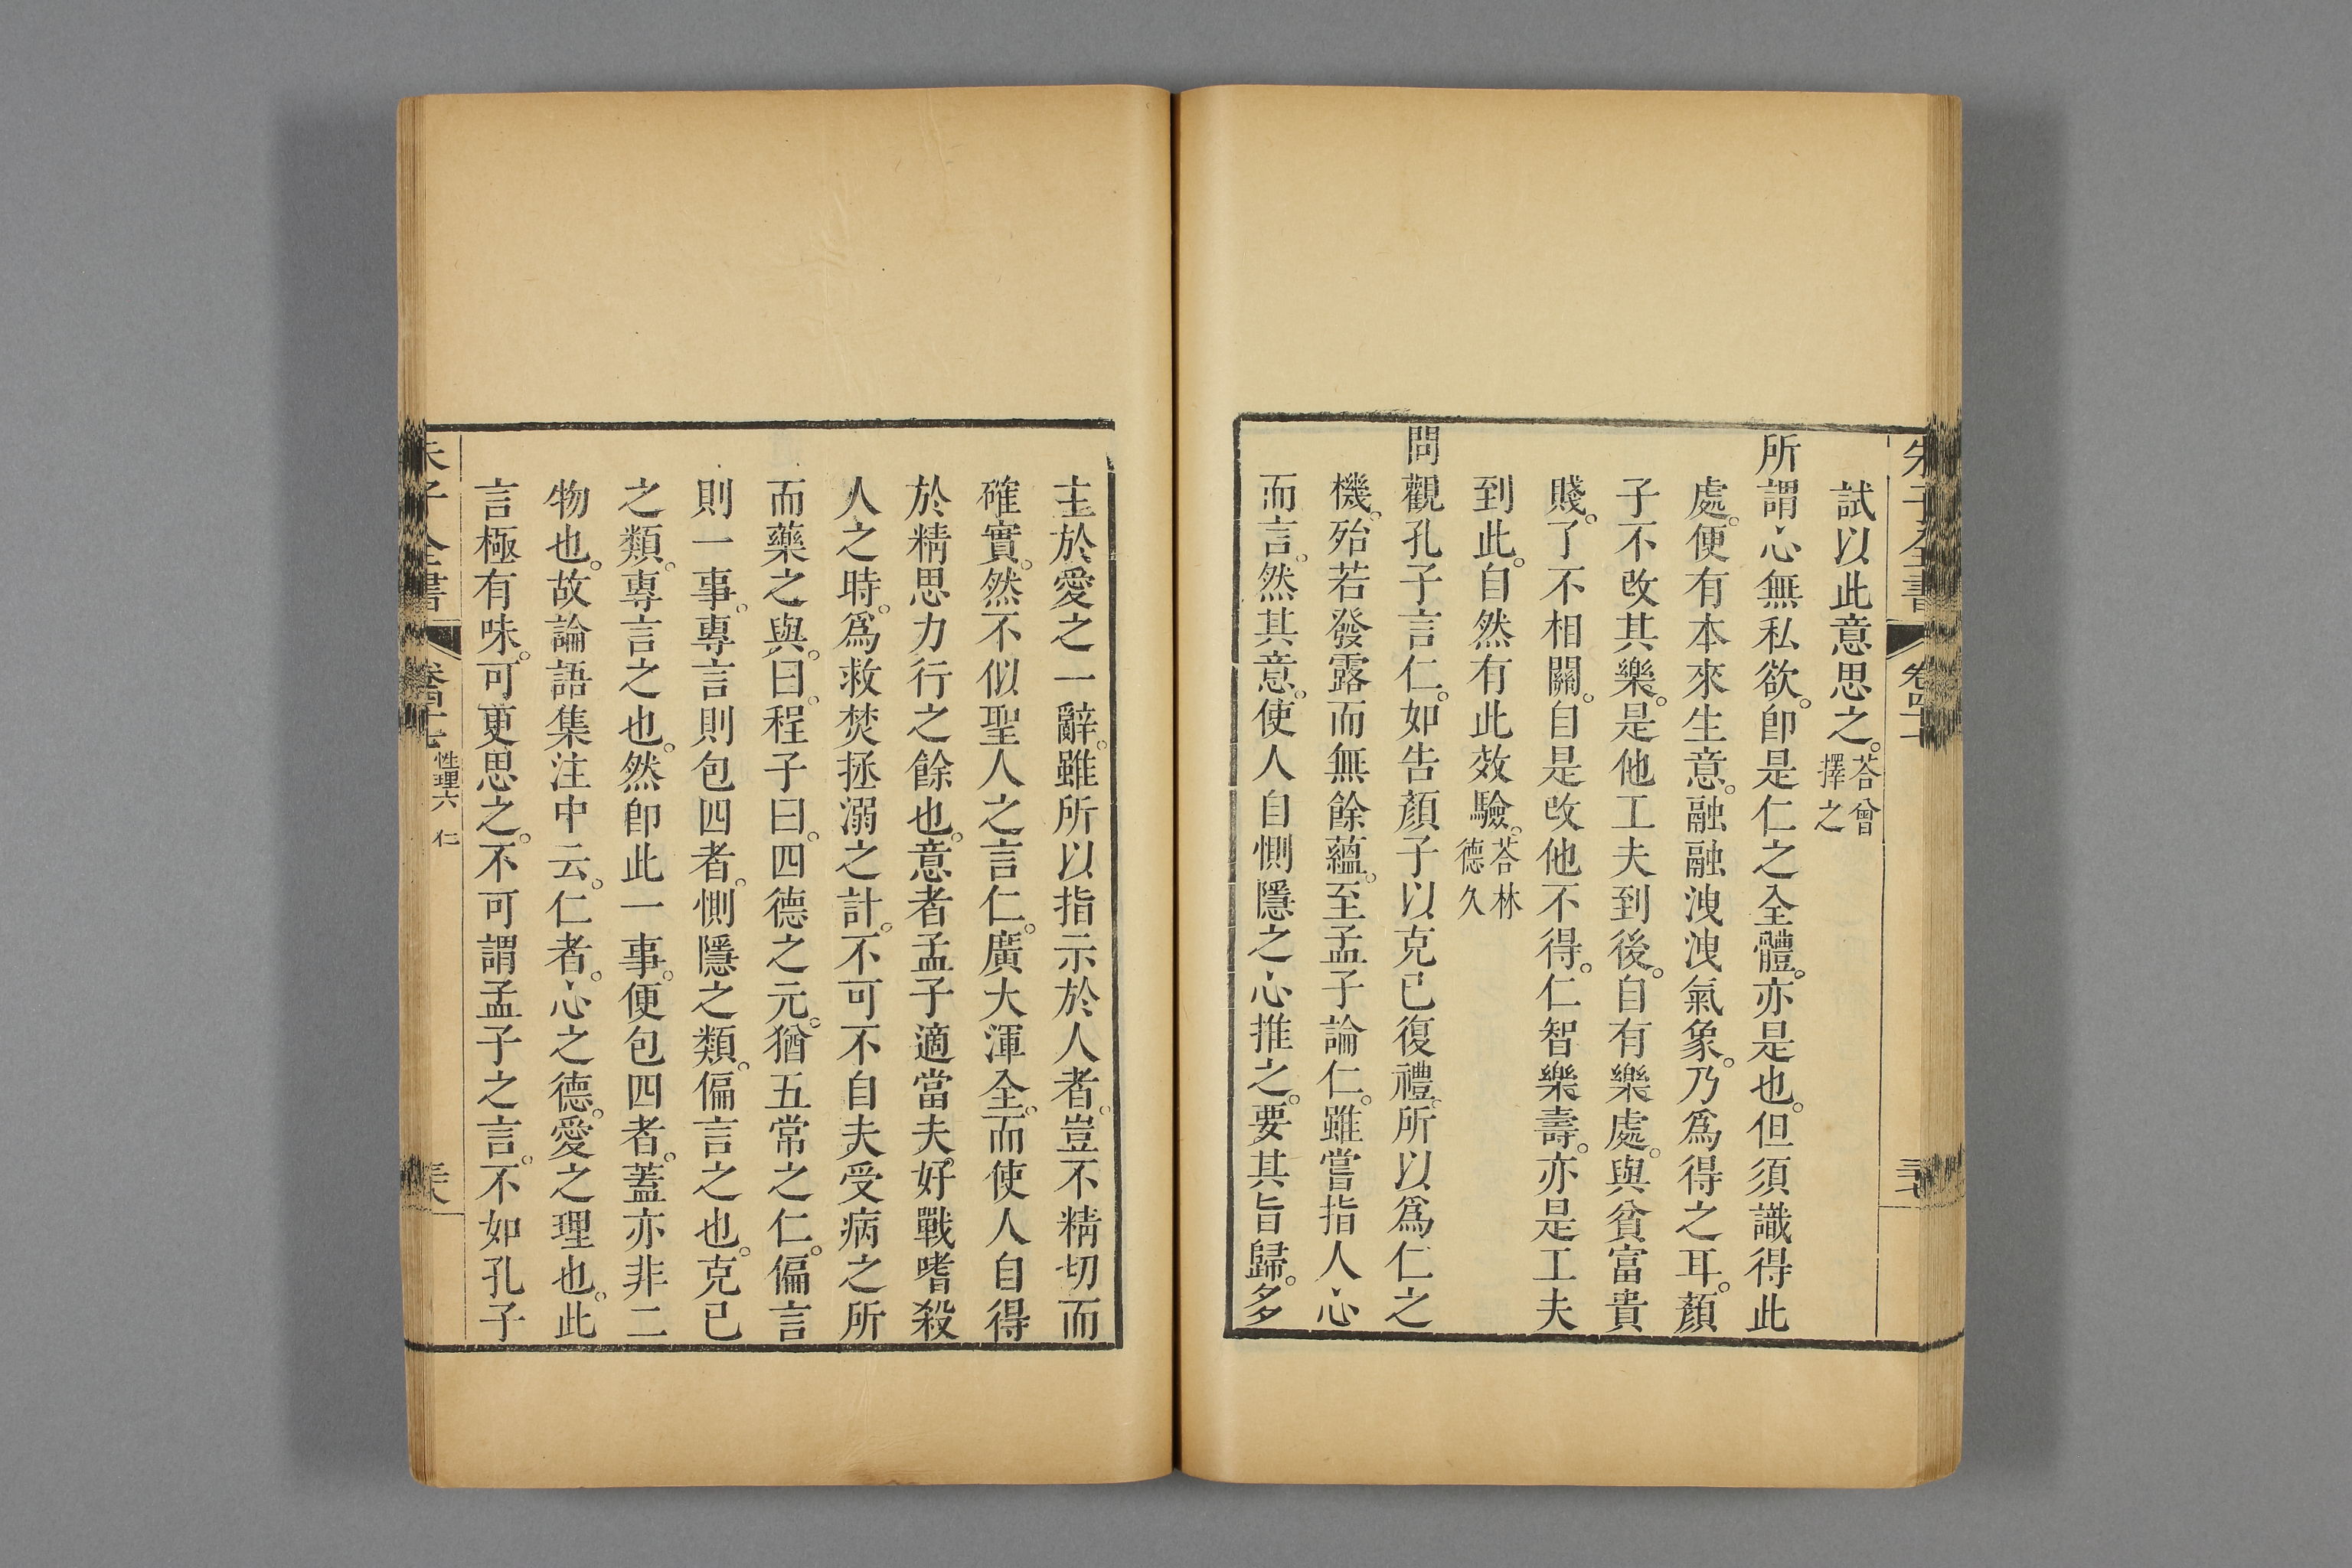 試以此意思之。荅曾擇之
所謂心無私欲。卽是仁之全體。亦是也。但須識得此
處。便有本來生意。融融洩洩氣象。乃爲得之耳。顏
子不改其樂。是他工夫到後。自有樂處。與貧富貴
賤。了不相關。自是改他不得。仁智樂壽。亦是工夫
到此。自然有此效驗。荅林德久
問觀孔子言仁。如告顏子以克已復禮。所以爲仁之
機。殆若發露而無餘蘊。至孟子論仁。雖嘗指人心
而言。然其意。使人自惻隱之心推之。要其旨歸。多
主於愛之一辭。雖所以指示於人者。豈不精切而
確實。然不似聖人之言仁。廣大渾全。而使人自得
於精思力行之餘也。意者孟子適當夫好戰嗜殺
人之時。爲救焚拯溺之計。不可不自夫受病之所
而藥之與。曰。程子曰。四德之元。猶五常之仁。偏言
則一事。專言則包四者。惻隱之類。偏言之也。克已
之類。專言之也。然卽此一事。便包四者。蓋亦非二
物也。故論語集注中云。仁者。心之德。愛之理也。此
言極有味。可更思之。不可謂孟子之言。不如孔子
性理六 仁